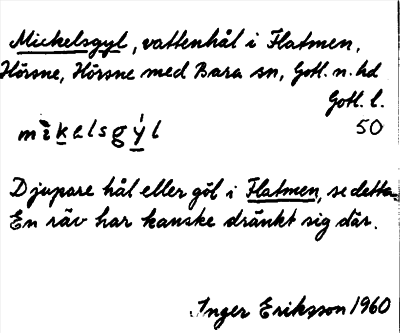 Mickelsgyl, vattenhål i Flatmen,
Hörsne, Hörsne med Bara sn, Gotl. n. hd
Gotl. l.
mikelsgýl 50
Djupare hål eller göl i Flatmen, se detta.
En räv har kanske dränkt sig där.
Inger Eriksson 1960